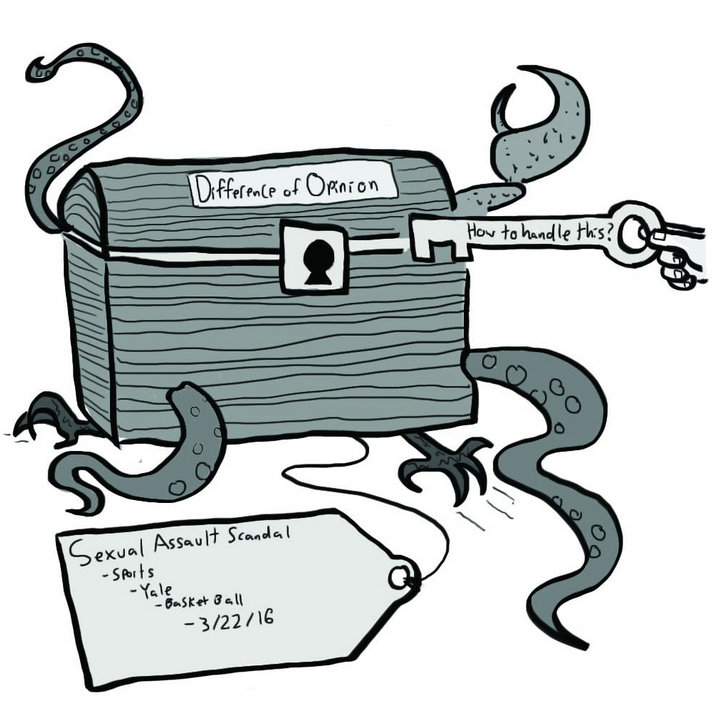 Difference of Opinion
How to handle this?
Sexual Assault Scandal
- Sports
- Yale
- Basket Ball
- 3/22/16